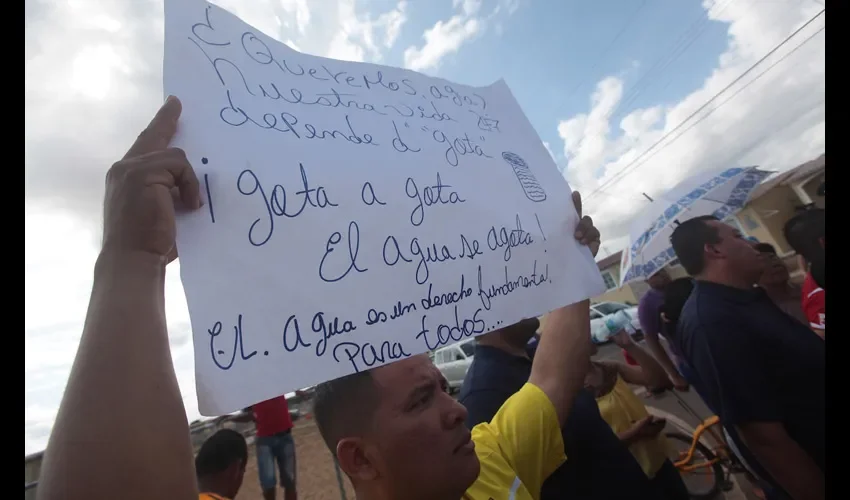 ¿Queremos agua?
nuestra vida
depende d' "gota"
¡gota a gota
El agua se agota!
El. Agua es un derecho fundamental
Para todos....